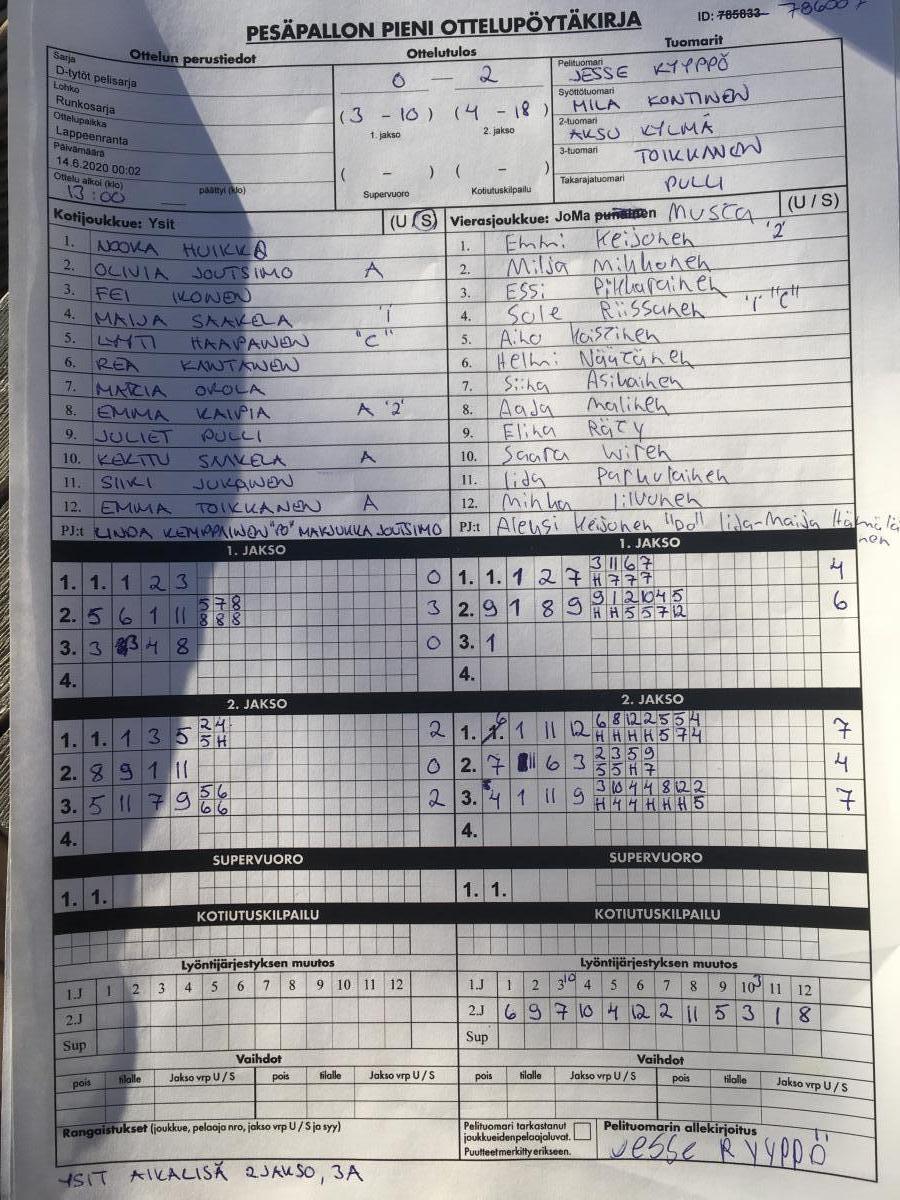 PESÄPALLON PIENI OTTELUPÖYTÄKIRJA
ID: 785833 78600
Ottelun perustiedot
Sarja
D-tytöt pelisarja
Lohko
Runkosarja
Ottelupaikka
Lappeenranta
Päivämäärä
14.6.2020 00:02
Ottelu alkoi (klo) päättyi (klo)
13:00
Ottelutulos
0 – 2
(3 - 10) (4 - 18)
1. jakso 2. jakso
( - ) ( - )
Supervuoro Kotiutuskilpailu
Tuomarit
Pelituomari
JESSE KYYPPÖ
Syöttötuomari
MILA KONTINEN
2-tuomari
AKSU KYLMÄ
3-tuomari
TOIKKANEN
Takarajatuomari
PULLI
Kotijoukkue: Ysit (U / S)
1. NOORA HUIKKA
2. OLIVIA JOUTSIMO A
3. FEI IKONEN
4. MAIJA SAAKELA '1'
5. LYYTI HAAPANEN "C"
6. REA KANTANEN
7. MARIA OROLA
8. EMMA KAIPIA A '2'
9. JULIET PULLI
10. KERTTU SAAKELA A
11. SIIRI JUKANEN
12. EMMA TOIKKANEN A
PJ:t LINDA KEMPPAINEN "PO" MARJUKKA JOUTSIMO
Vierasjoukkue: JoMa punainen MUSTA (U / S)
1. Emmi Keijonen '2'
2. Milja Mihkonen
3. Essi Pikkarainen
4. Sale Riissanen '1' "C"
5. Aino Koistinen
6. Helmi Näätänen
7. Siina Asikainen
8. Aada Malinen
9. Elina Räty
10. Saara Wiren
11. Iida Parkulainen
12. Minna Iivonen
PJ:t Aleksi Keijonen "PO" Iida-Maija Hämäläinen
1. JAKSO
1. 1. 1 2 3 0
2. 5 6 1 11 5 7 8 3
8 8 8
3. 3 3 4 8 0
4.
2. JAKSO
1. 1. 1 3 5 2 4 2
5 H
2. 8 9 1 11 0
3. 5 11 7 9 5 6 2
6 6
4.
SUPERVUORO
1. 1.
KOTIUTUSKILPAILU
Lyöntijärjestyksen muutos
1.J 1 2 3 4 5 6 7 8 9 10 11 12
2.J
Sup
Vaihdot
pois tilalle Jakso vrp U / S pois tilalle Jakso vrp U / S
Rangaistukset (joukkue, pelaaja nro, jakso vrp U / S ja syy)
YSIT AIKALISÄ 2JAKSO, 3A
1. JAKSO
1. 1. 1 2 7 3 11 6 7 4
H 7 7 7
2. 9 1 8 9 9 1 2 10 4 5 6
H H 5 5 7 12
3. 1
4.
2. JAKSO
1. 6 1 11 12 6 8 12 2 5 5 4 7
H H H H 5 7 4
2. 7 11 6 3 2 3 5 9 4
5 5 H 7
3. 4 1 11 9 3 10 4 4 8 12 2 7
H 4 4 H H H 5
4.
SUPERVUORO
1. 1.
KOTIUTUSKILPAILU
Lyöntijärjestyksen muutos
1.J 1 2 3 10 4 5 6 7 8 9 10 3 11 12
2.J 6 9 7 10 4 12 2 11 5 3 1 8
Sup
Vaihdot
pois tilalle Jakso vrp U / S pois tilalle Jakso vrp U / S
Pelituomari tarkastanut
joukkueidenpelaajaluvat.
Puutteet merkitty erikseen.
Pelituomarin allekirjoitus
Jesse RYYPPÖ